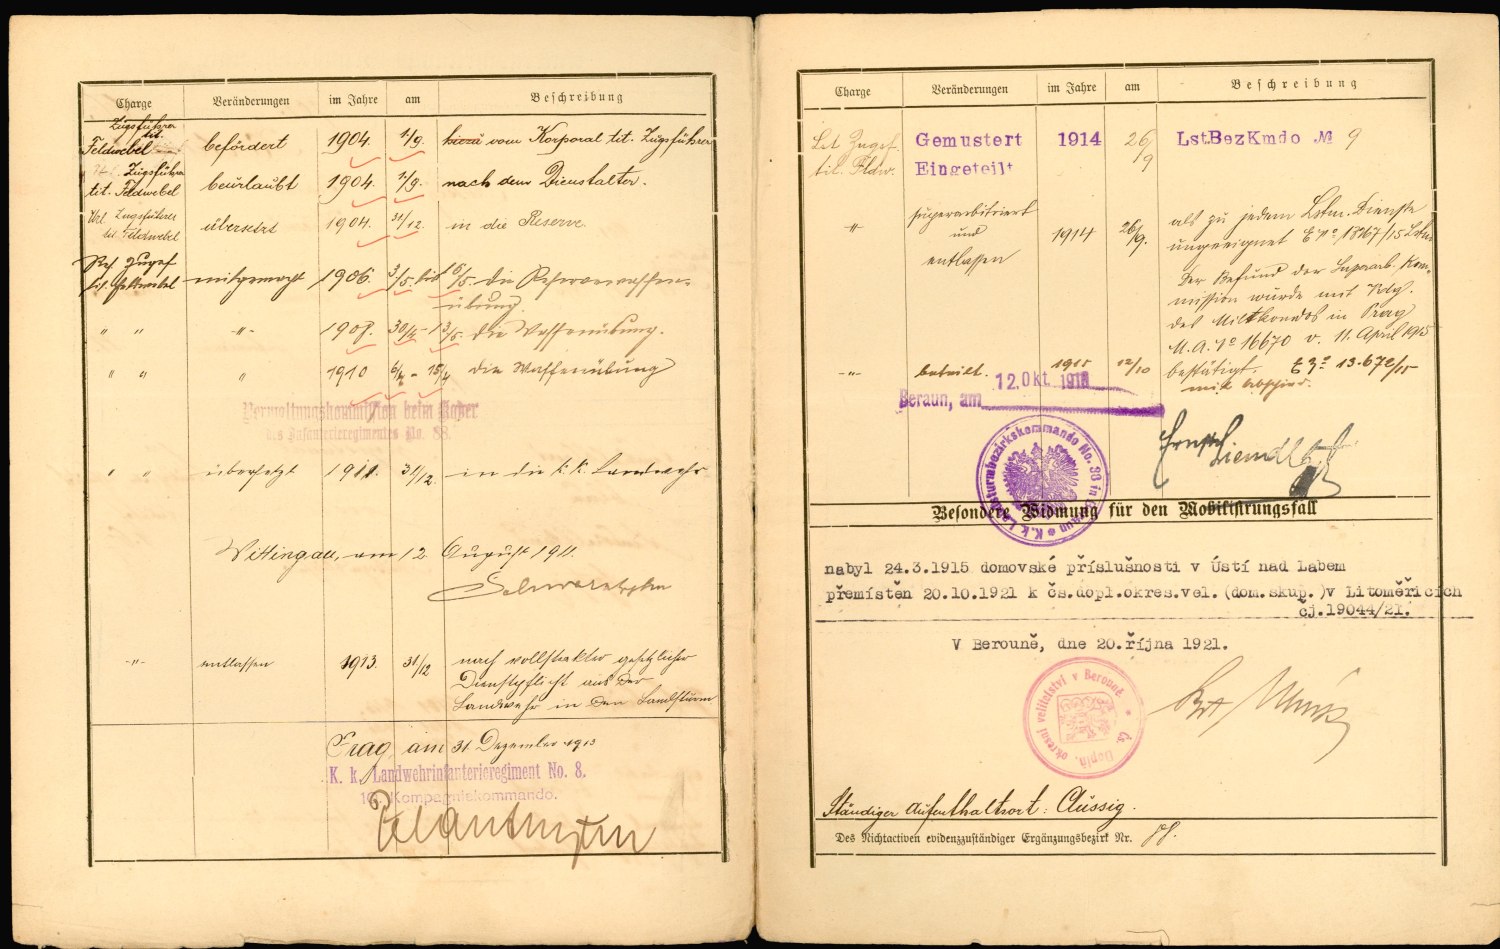 Charge Veränderungen im Jahre am Beschreibung
Zugsführer
tit.
Feldwebel befördert 1904. 1/9. hiezu vom Korporal tit. Zugsführer
Zugsführer
tit. Feldwebel beurlaubt 1904. 1/9. nach dem Dienstalter.
Url. Zugsführer
tit. Feldwebel übersetzt 1904. 31/12. in die Reserve.
Res. Zugsf
tit. Feldwebel mitgemacht 1906. 3/5. bis 15/5. die Reservewaffen-
übung.
" " -"- 1908. 30/4 - 13/5. die Waffenübung.
" " " 1910 6/4 - 18/4 die Waffenübung
Verwaltungskommission beim Kader
des Infanterieregimentes No. 88.
" " übersetzt 1911. 31/12. in die k. k. Landwehr
Wittingau, am 12. August 1911.
-"- entlassen 1913. 31/12 nach vollstreckter gesetzlicher
Dienstpflicht aus der
Landwehr in den Landsturm
Prag am 31. Dezember 1913
K. k. Landwehrinfanterieregiment No. 8.
10. Kompagniekommando.
Charge Veränderungen im Jahre am Beschreibung
Lst. Zugsf.
tit. Fldw.
Gemustert 1914 26/9 LstBezKmdo № 9
Eingeteilt
" superarbitriert
und
entlassen
1914 26/9.
als zu jedem Lstm. Dienste
ungeeignet E No 18167/15 Lstm.
Der Befund der Superarb. Kom-
mission wurde mit Vdg.
des Miltkondos in Prag
M.A. No 16670 v. 11. April 1915
bestätigt. E No 13.672/15
-"- beteilt. 1915 12/10
mit Abschied.
Beraun, am 12. Okt. 1915
K. k. Landsturmbezirkskommando No. 38 in Beraun
Besondere Widmung für den Mobilisirungsfall
nabyl 24.3.1915 domovské příslušnosti v Ústí nad Labem
přemístěn 20.10.1921 k čs.dopl.okres.vel.(dom.skup.)v Litoměřicích
čj.19044/21.
V Berouně, dne 20.října 1921.
Čs. Doplň. okresní velitelství v Berouně
Ständiger Aufenthaltsort: Aussig.
Des Nichtactiven evidenzzuständiger Ergänzungsbezirk Nr. 88.